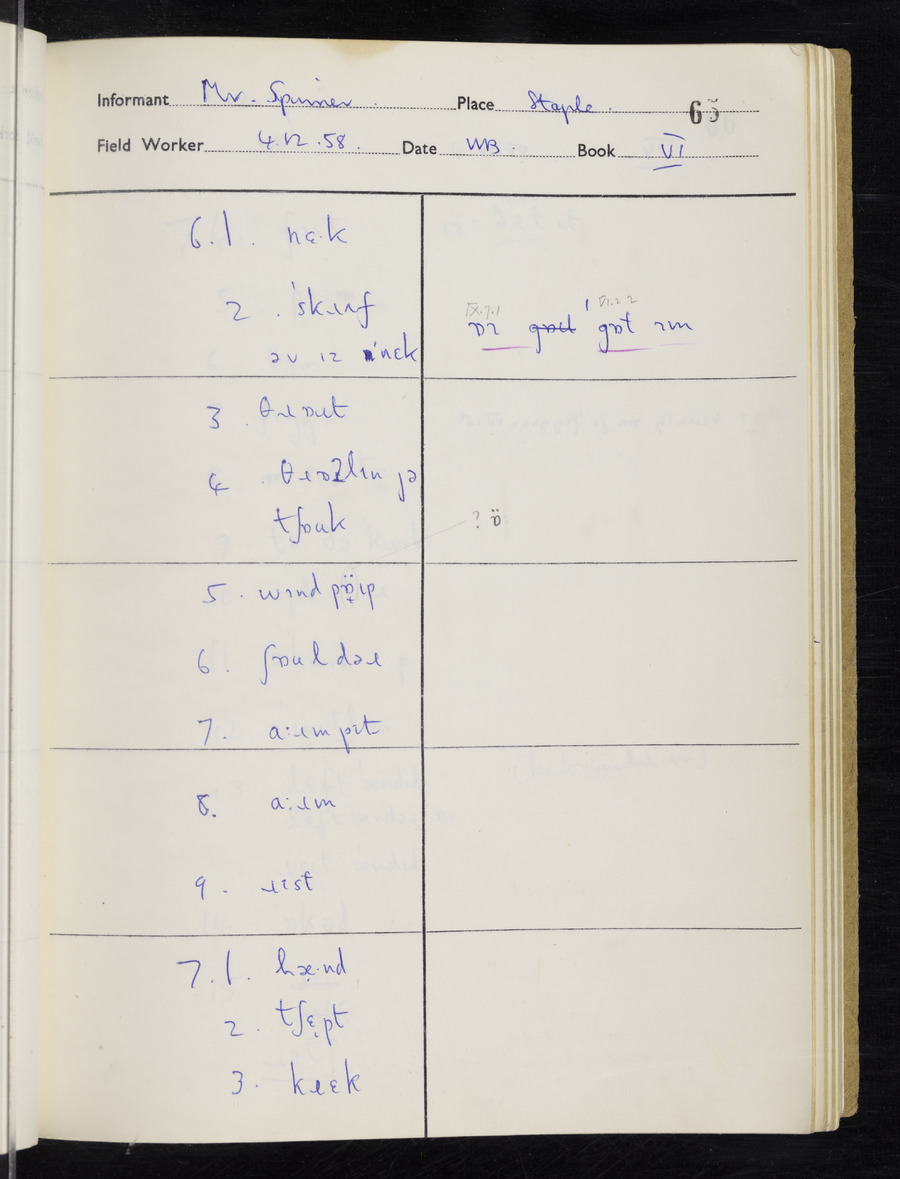 Informant Mr. Spinner Place Staple. 63
Field Worker 4.12.58. Date WB Book VI
6.1. nɛ·k
2. ˈskɹʌf
əv ɪz ˈnɛk
IX.7.1 VI.2.2
ɒɪ ˈgɒt ɪm
3. θɹɒut
4. θɹɒʔlɪn jə
tʃɒuk ? ɒ̈
5. wɪnd pɒ̈ɪp
6. ʃɒuldəɹ
7. a:ɹm pɪt
8. a:ɹm
9. ɹɪst
7.1. hæ·nd
2. tʃɛpt
3. kɹɛk